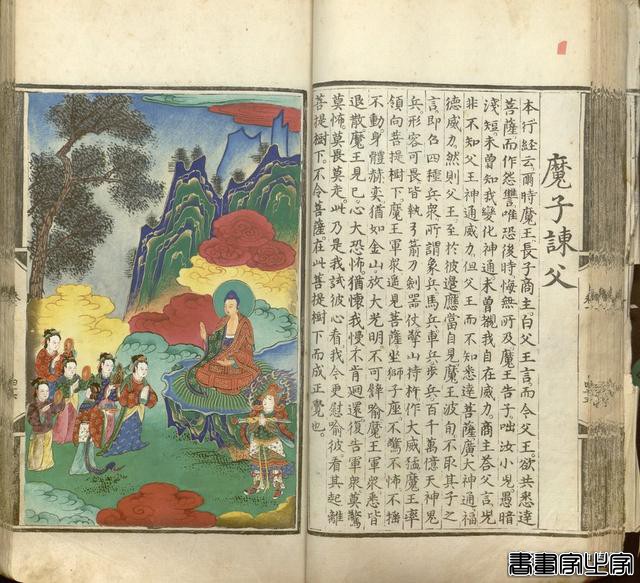 魔子諫父
本行經云爾時魔王長子商主白父王言而今父王欲共悉達
菩薩而作怨讐唯恐後時悔無所及魔王告子咄汝小兒愚暗
淺短未曾知我變化神通未曾覩我自在威力商主荅父言兒
非不知父王神通威力但父王而不知悉達菩薩廣大神通福
德威力然則父王至於彼邊應當自見魔王波旬不取其子之
言即召四種兵衆所謂象兵馬兵車兵步兵百千萬億天神鬼
兵形容可畏皆執弓箭刀劍器仗擎山持杵作大威猛魔王率
領向菩提樹下魔王軍衆遙見菩薩坐獅子座不驚不怖不搖
不動身體赫奕猶如金山放大光明不可譬喻魔王軍衆悉皆
退散魔王見已心大恐怖猶懷我慢不肯迴還復告軍衆莫驚
莫怖莫畏莫走此乃是我試彼心看我今更慰喻彼看其起離
菩提樹下不令菩薩在此菩提樹下而成正覺也
書畫家之家